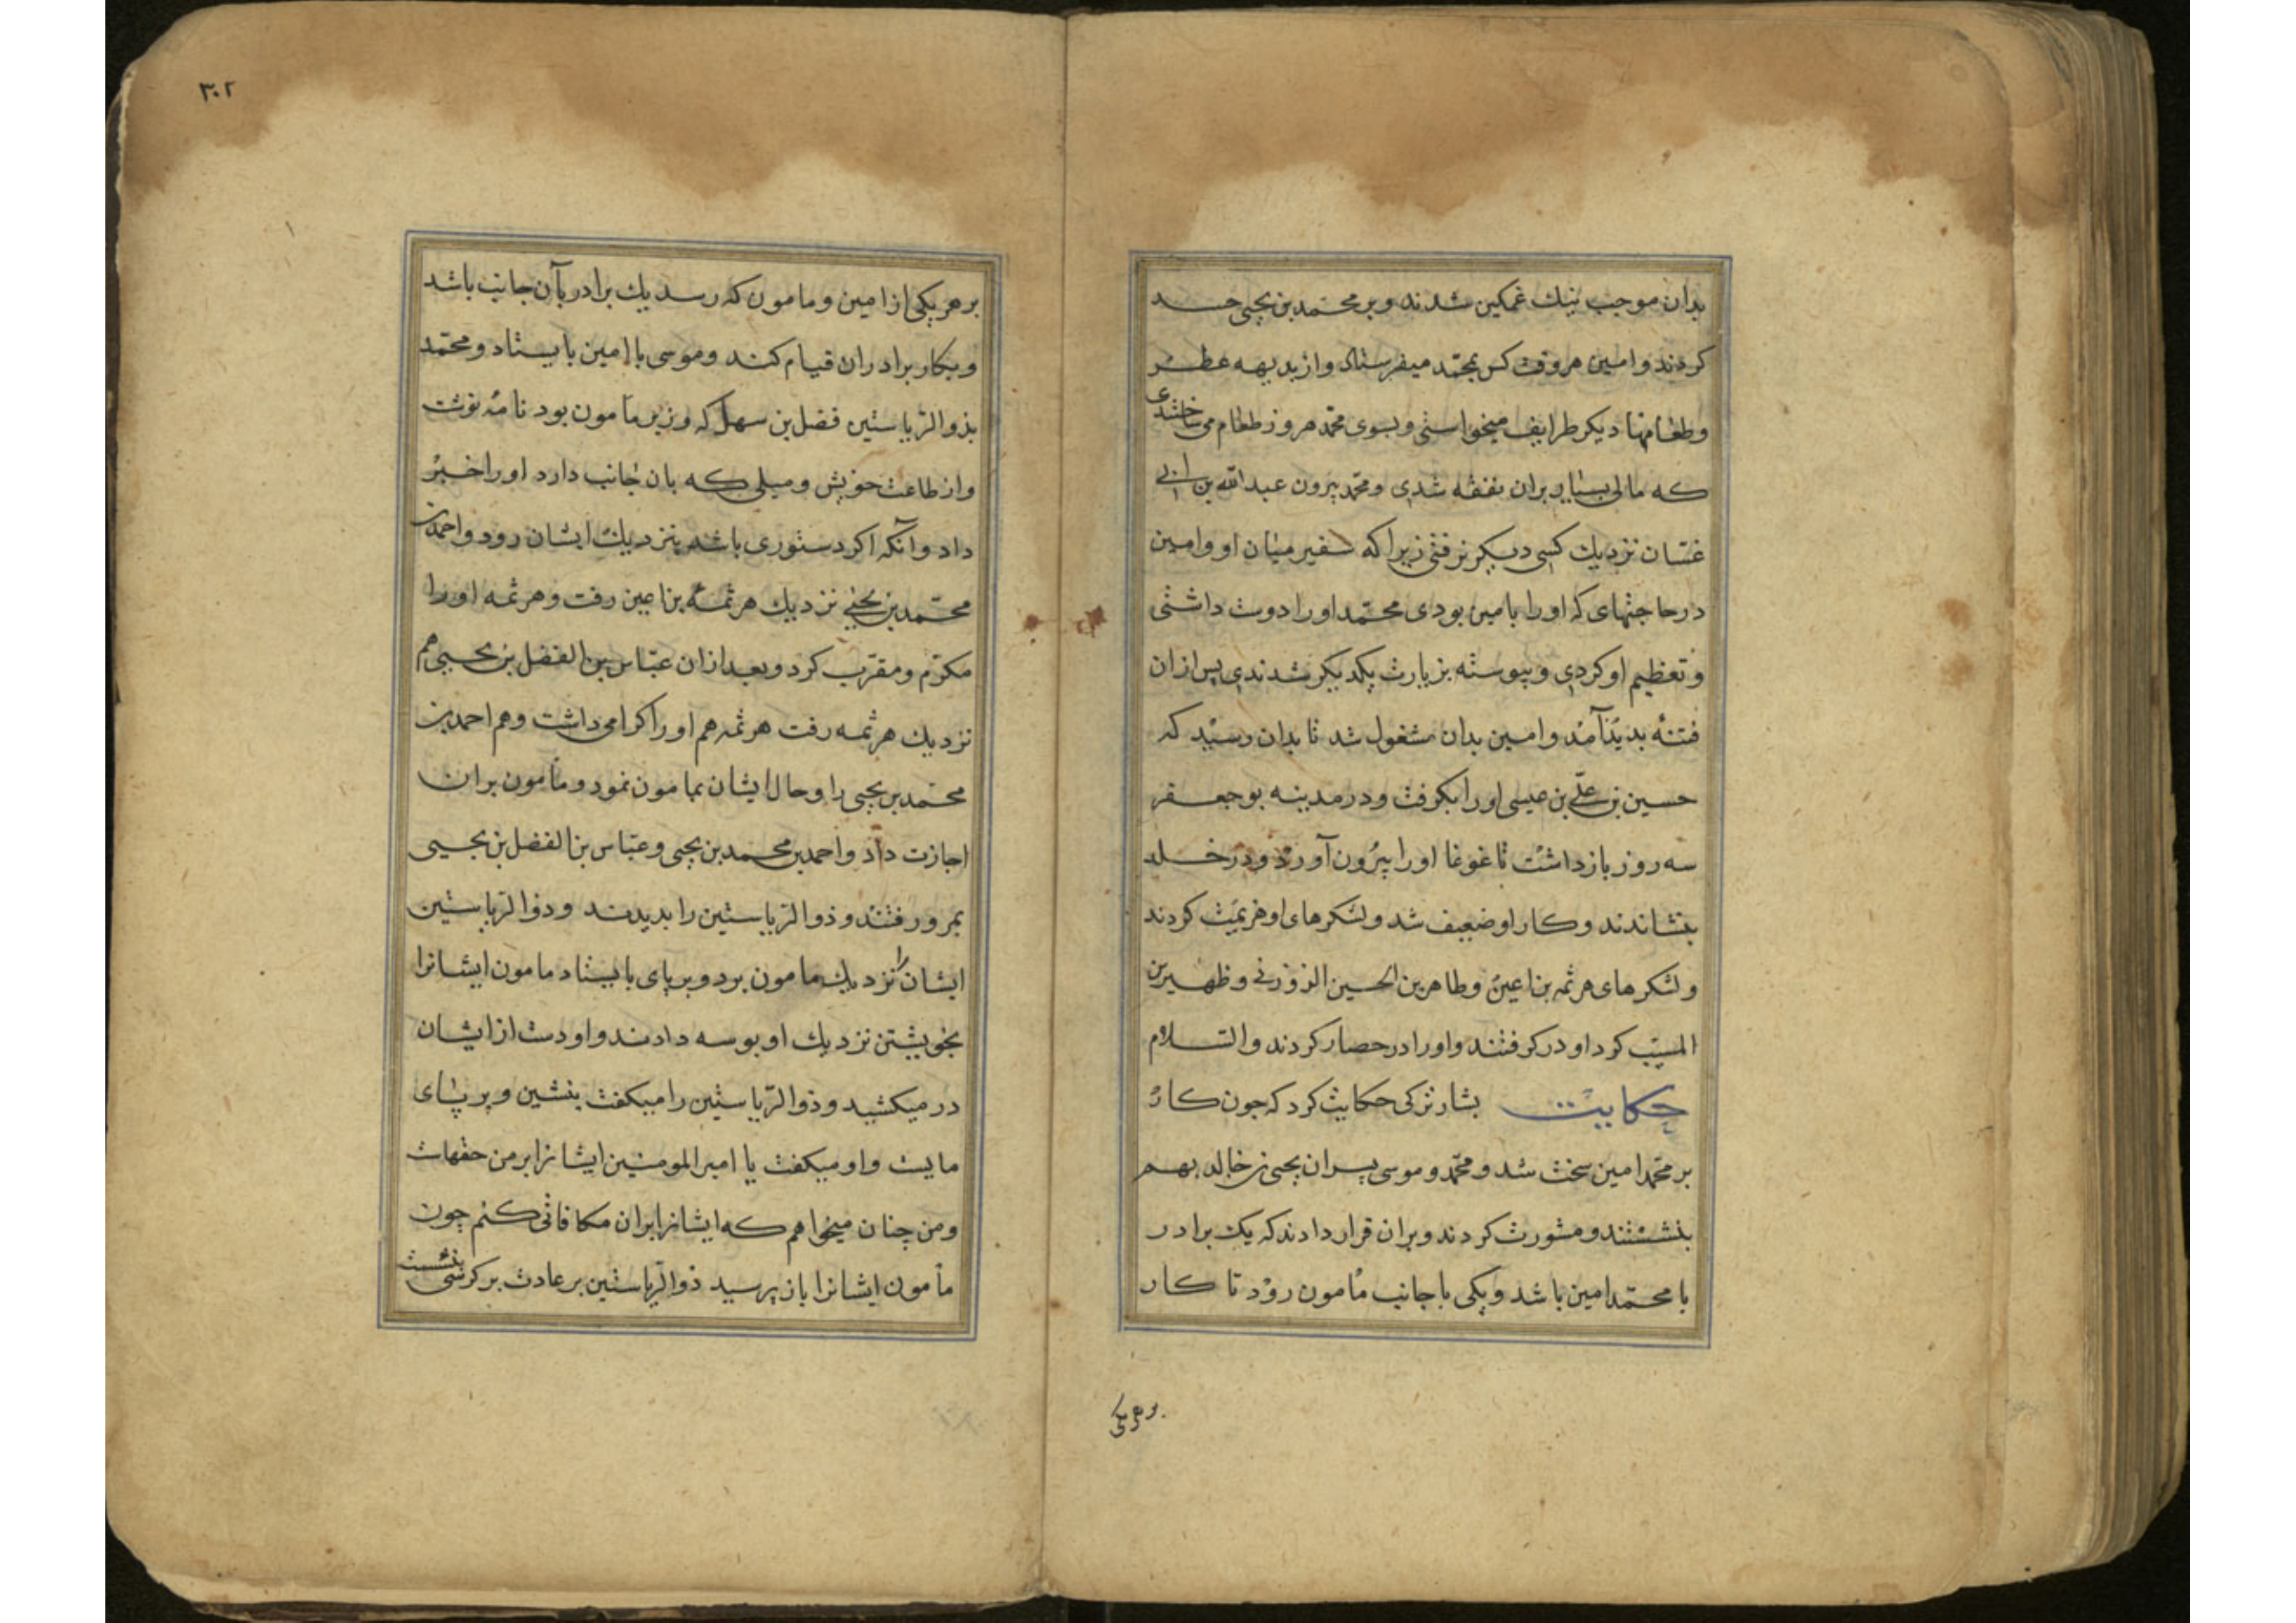 بدان موجب نیك غمکین شدند و بر محمد بن یحیی حسد
کردند و امین هر وقت کس بمحمد میفرستاد و از بدیهه عطر
و طعامها دیکر طرایف میخواستی و بسوی محمد هر روز طعام می ساختندی
که مالی بسیار بران نفقه شدی و محمد بیرون عبد الله بن ابی
غسّان نزدیك کسی دیکر نرفتی زیرا که سفیر میان او و امین
در حاجتهای که او را بامین بودی محمّد او را دوست داشتی
و تعظیم او کردی و پیوسته بزیارت یکدیکر شدندی پس ازان
فتنه بدید آمد و امین بدان مشغول شد تا بدان رسید که
حسین بن علّی بن عیسی او را بکرفت و در مدینه بوجعفر
سه روز باز داشت تا غوغا او را بیرون آورد و در خلد
بنشاندند و کار او ضعیف شد و لشکرهای او هزیمت کردند
و لشکرهای هرثمه بن اعین و طاهر بن الحسین الزوزنی و ظهیر بن
المسیّب کرد او در کرفتند و او را در حصار کردند و السّلام
حکایت بشار ترکی حکایت کرد که جون کار
بر محمّد امین سخت شد و محمّد و موسی پسران یحیی بن خالد بهم
بنشستند و مشورت کردند و بران قرار دادند که یك برادر
با محمّد امین باشد و یکی با جانب مأمون رود تا کار
بر هر یکی
۳۰۲
بر هر یکی از امین و مامون که رسد یك برادر بآن جانب باشد
و بکار برادران قیام کند و موسی با امین بایستاد و محمّد
بذو الریاستین فضل بن سهل که وزیر مأمون بود نامه نوشت
و از طاعت خویش و میلی که بان جانب دارد او را خبر
داد و آنکه اکر دستوری باشد بنزدیك ایشان رود و احمد بن
محمّد بن یحیی نزدیك هرثمه بن اعین رفت و هرثمه او را
مکرّم و مقرّب کرد و بعد ازان عبّاس بن الفضل بن یحیی هم
نزدیك هرثمه رفت هرثمه هم او را کرامی داشت و هم احمد بن
محمّد بن یحیی را و حال ایشان بمامون نمود و مأمون بران
اجازت داد و احمد بن محمد بن یحیی و عبّاس بن الفضل بن یحیی
بمرو رفتند و ذو الریاستین را بدیدند و ذو الریاستین
ایشان را نزدیك مامون برد و بر پای بایستاد مامون ایشانرا
بخویشتن نزدیك او بوسه دادند و او دست از ایشان
در میکشید و ذو الریاستین را میکفت بنشین و بر پای
مایست و او میکفت یا امیر المومنین ایشانرا بر من حقهاست
و من چنان میخواهم که ایشانرا بران مکافاتی کنم چون
مأمون ایشانرا باز پرسید ذو الریاستین بر عادت بر کرسی بنشست